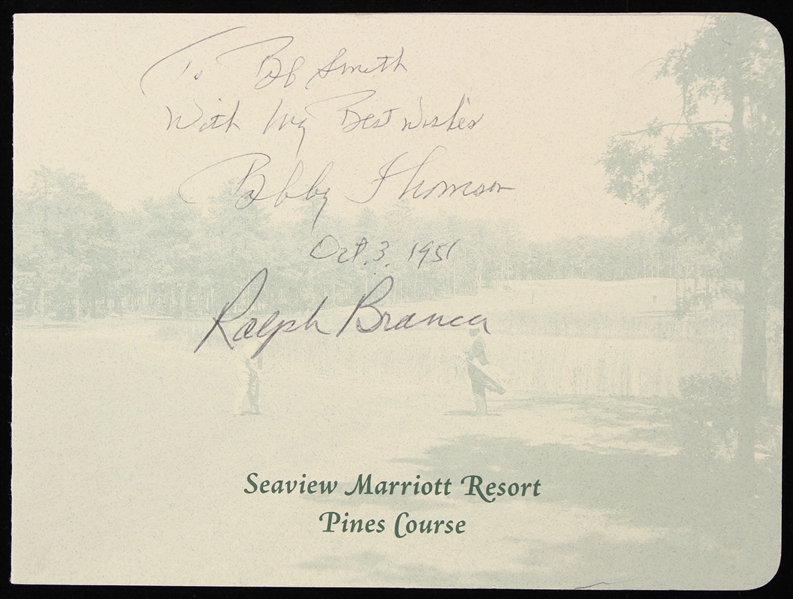 To Bob Smith
With My Best Wishes
Bobby Thomson
Oct. 3, 1951
Ralph Branca
Seaview Marriott Resort
Pines Course